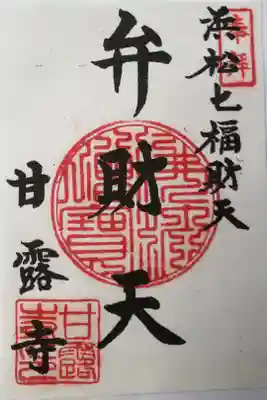 奉拝
浜松七福財天
弁財天
甘露寺